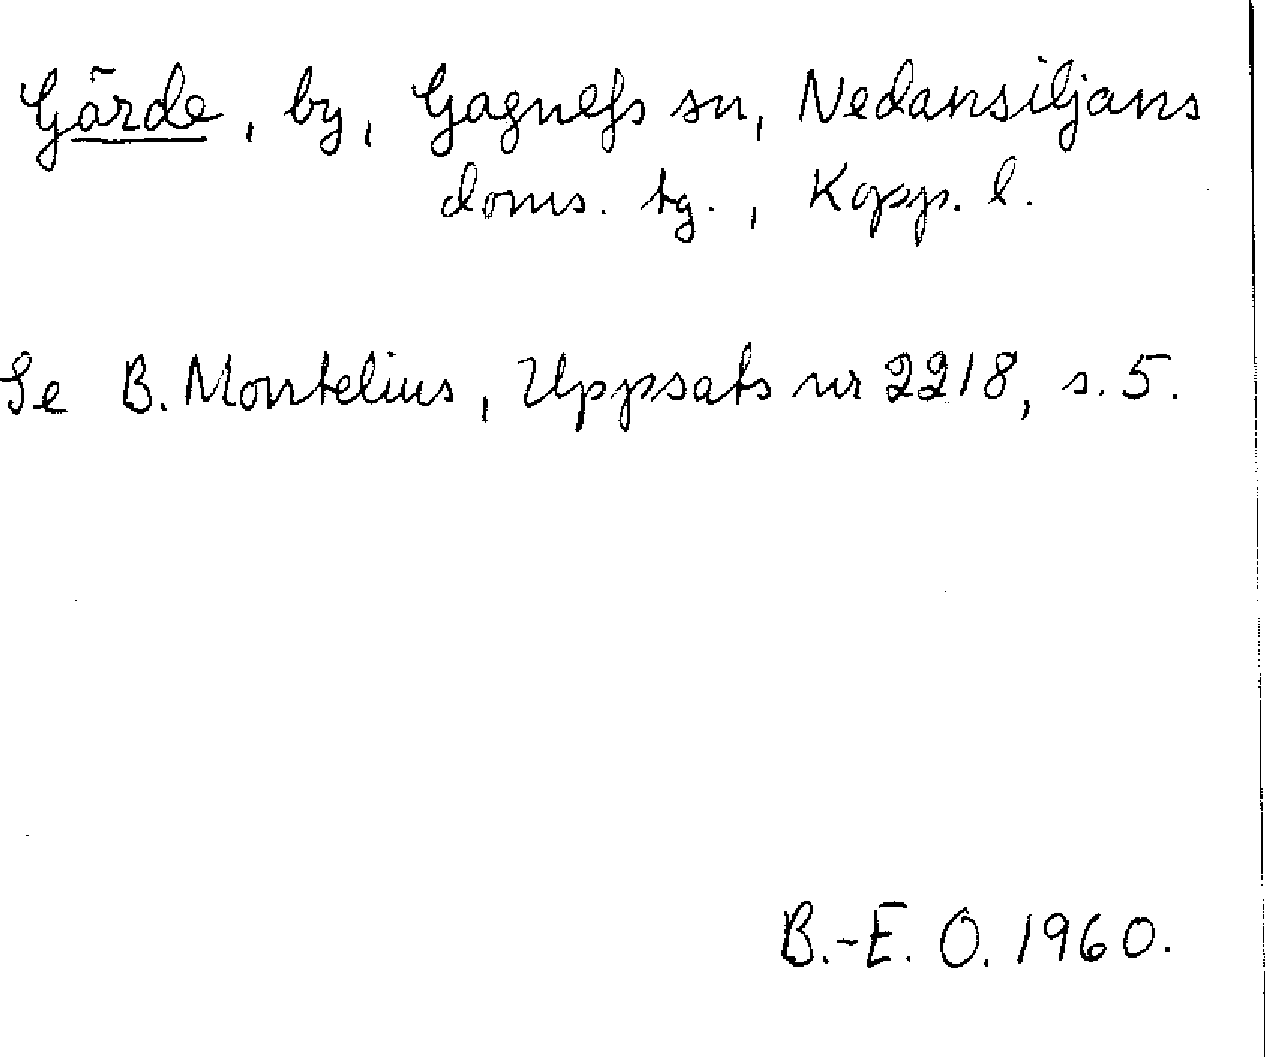 Gärde, by, Gagnefs sn, Nedansiljans
doms. tg., Kopp. l.
Se B. Montelius, Uppsats nr 2218, s. 5.
B.-E. O. 1960.